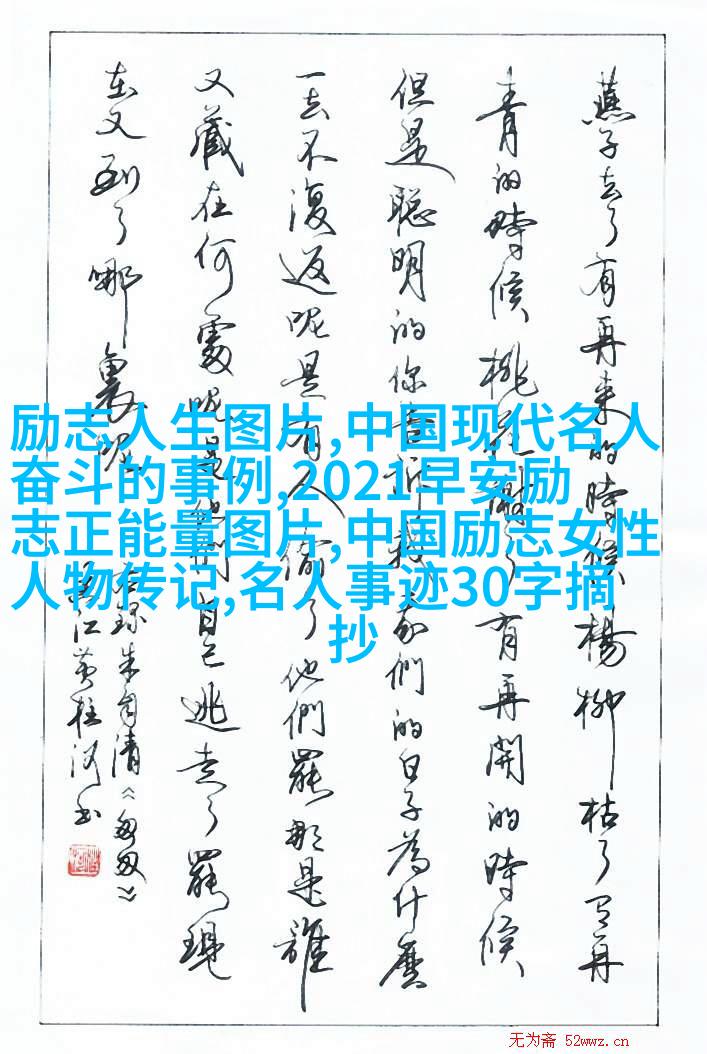 燕子去了有再来的時候楊柳枯了有再
青的時候桃花謝了有再開的時候
但是聰明的你告訴我我們的日子為什麼
一去不復返呢是有人偷了他們罷那是誰
又藏在何處呢是他們自己逃走了罷現
在又到了哪裏呢
朱自清《匆匆》
江黄桂河书
励志人生图片,中国现代名人
奋斗的事例,2021早安励
志正能量图片,中国励志女性
人物传记,名人事迹30字摘
抄
无为斋 52wwz.cn